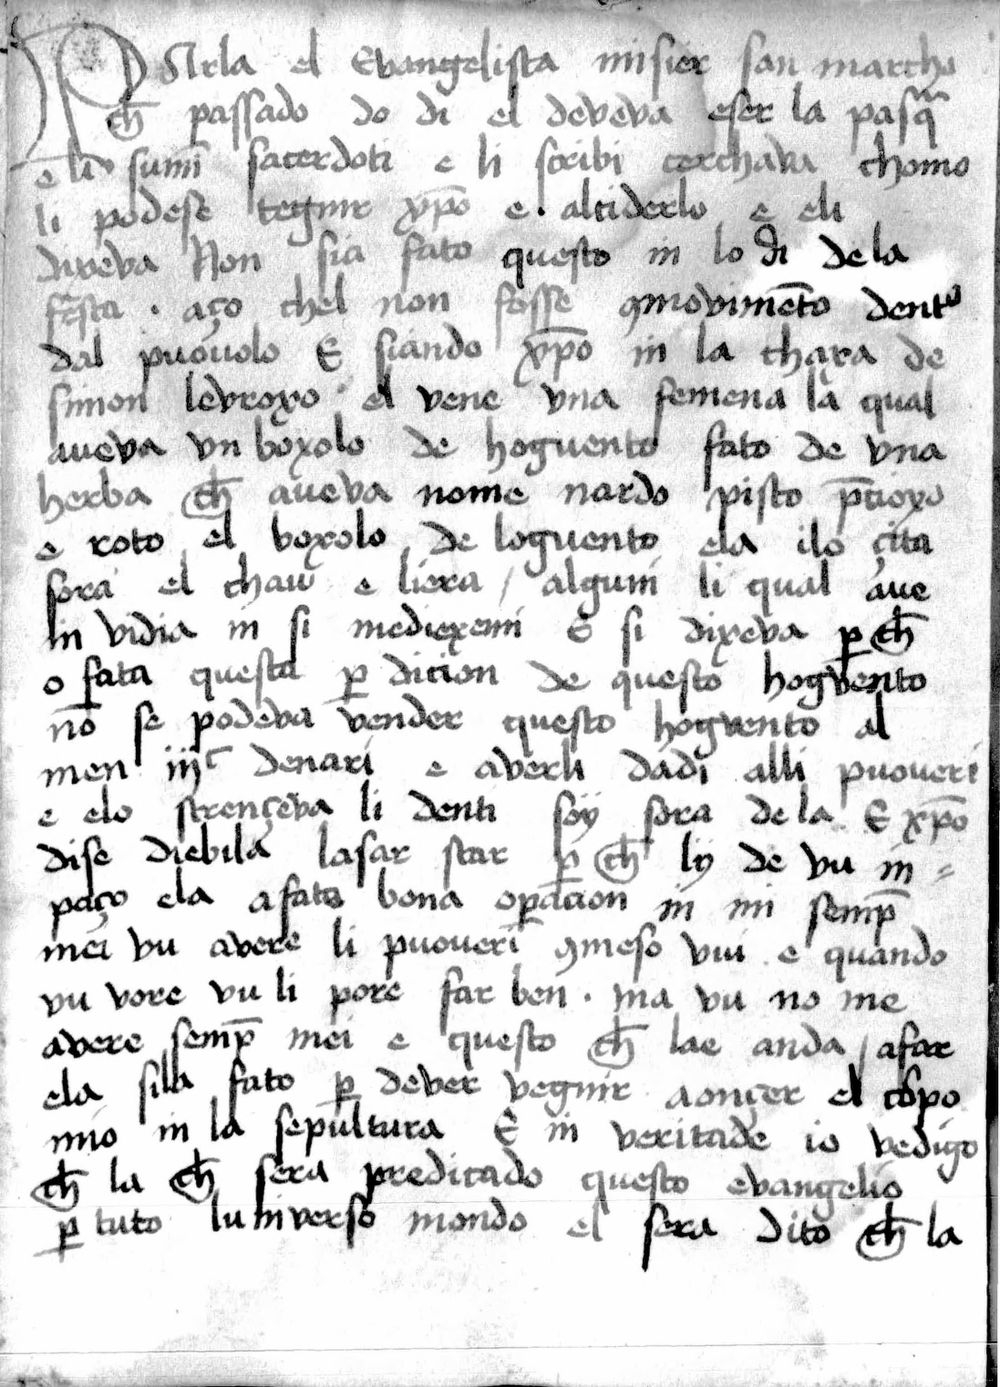 PArla el Evangelista misier san marcho
ch̄ passado do di el deveva eser la pasq̄
e li sumi sacerdoti e li scribi cerchava chomo
li podese tegnir xp̄o e. alciderlo e eli
dixeva Non sia fato questo in lo di de la
festa. aço chel non fosse ꝯmovimēto dento
dal puovolo E siando xp̄o in la chaxa de
simon levroxo el vene vna femena la qual
aueva vn boxolo de hoguento fato de vna
herba ch̄ aueva nome nardo pisto p̄cioxo
e roto el boxolo de loguento ela ilo çita
sora el chauo e liera / alguni li qual aue
in vidia in si mediexemi E si dixeva ꝑ ch̄
o fata questa ꝑ dicion de questo hogvento
nō se podeva vender questo hogvento al
men iijc denari e averli dadi alli puoueri
e elo strençeva li denti soy sora de la E xp̄o
dise diebila lasar star ꝑ ch̄ ly de vu in=
paço ela a fato bona oꝑacion in mi semp̄
mei vu avere li puoueri ꝯmeso vui e quando
vu vore vu li pore far ben. ma vu no me
avere semp̄ mei e questo ch̄ lae anda / afar
ela sila fato ꝑ dever vegnir a onçer el corpo
mio in la sepultura E in veritade io ve digo
ch̄ la ch̄ sera predicado questo evangelio
ꝑ tuto lu niverso mondo el sera dito ch̄ la